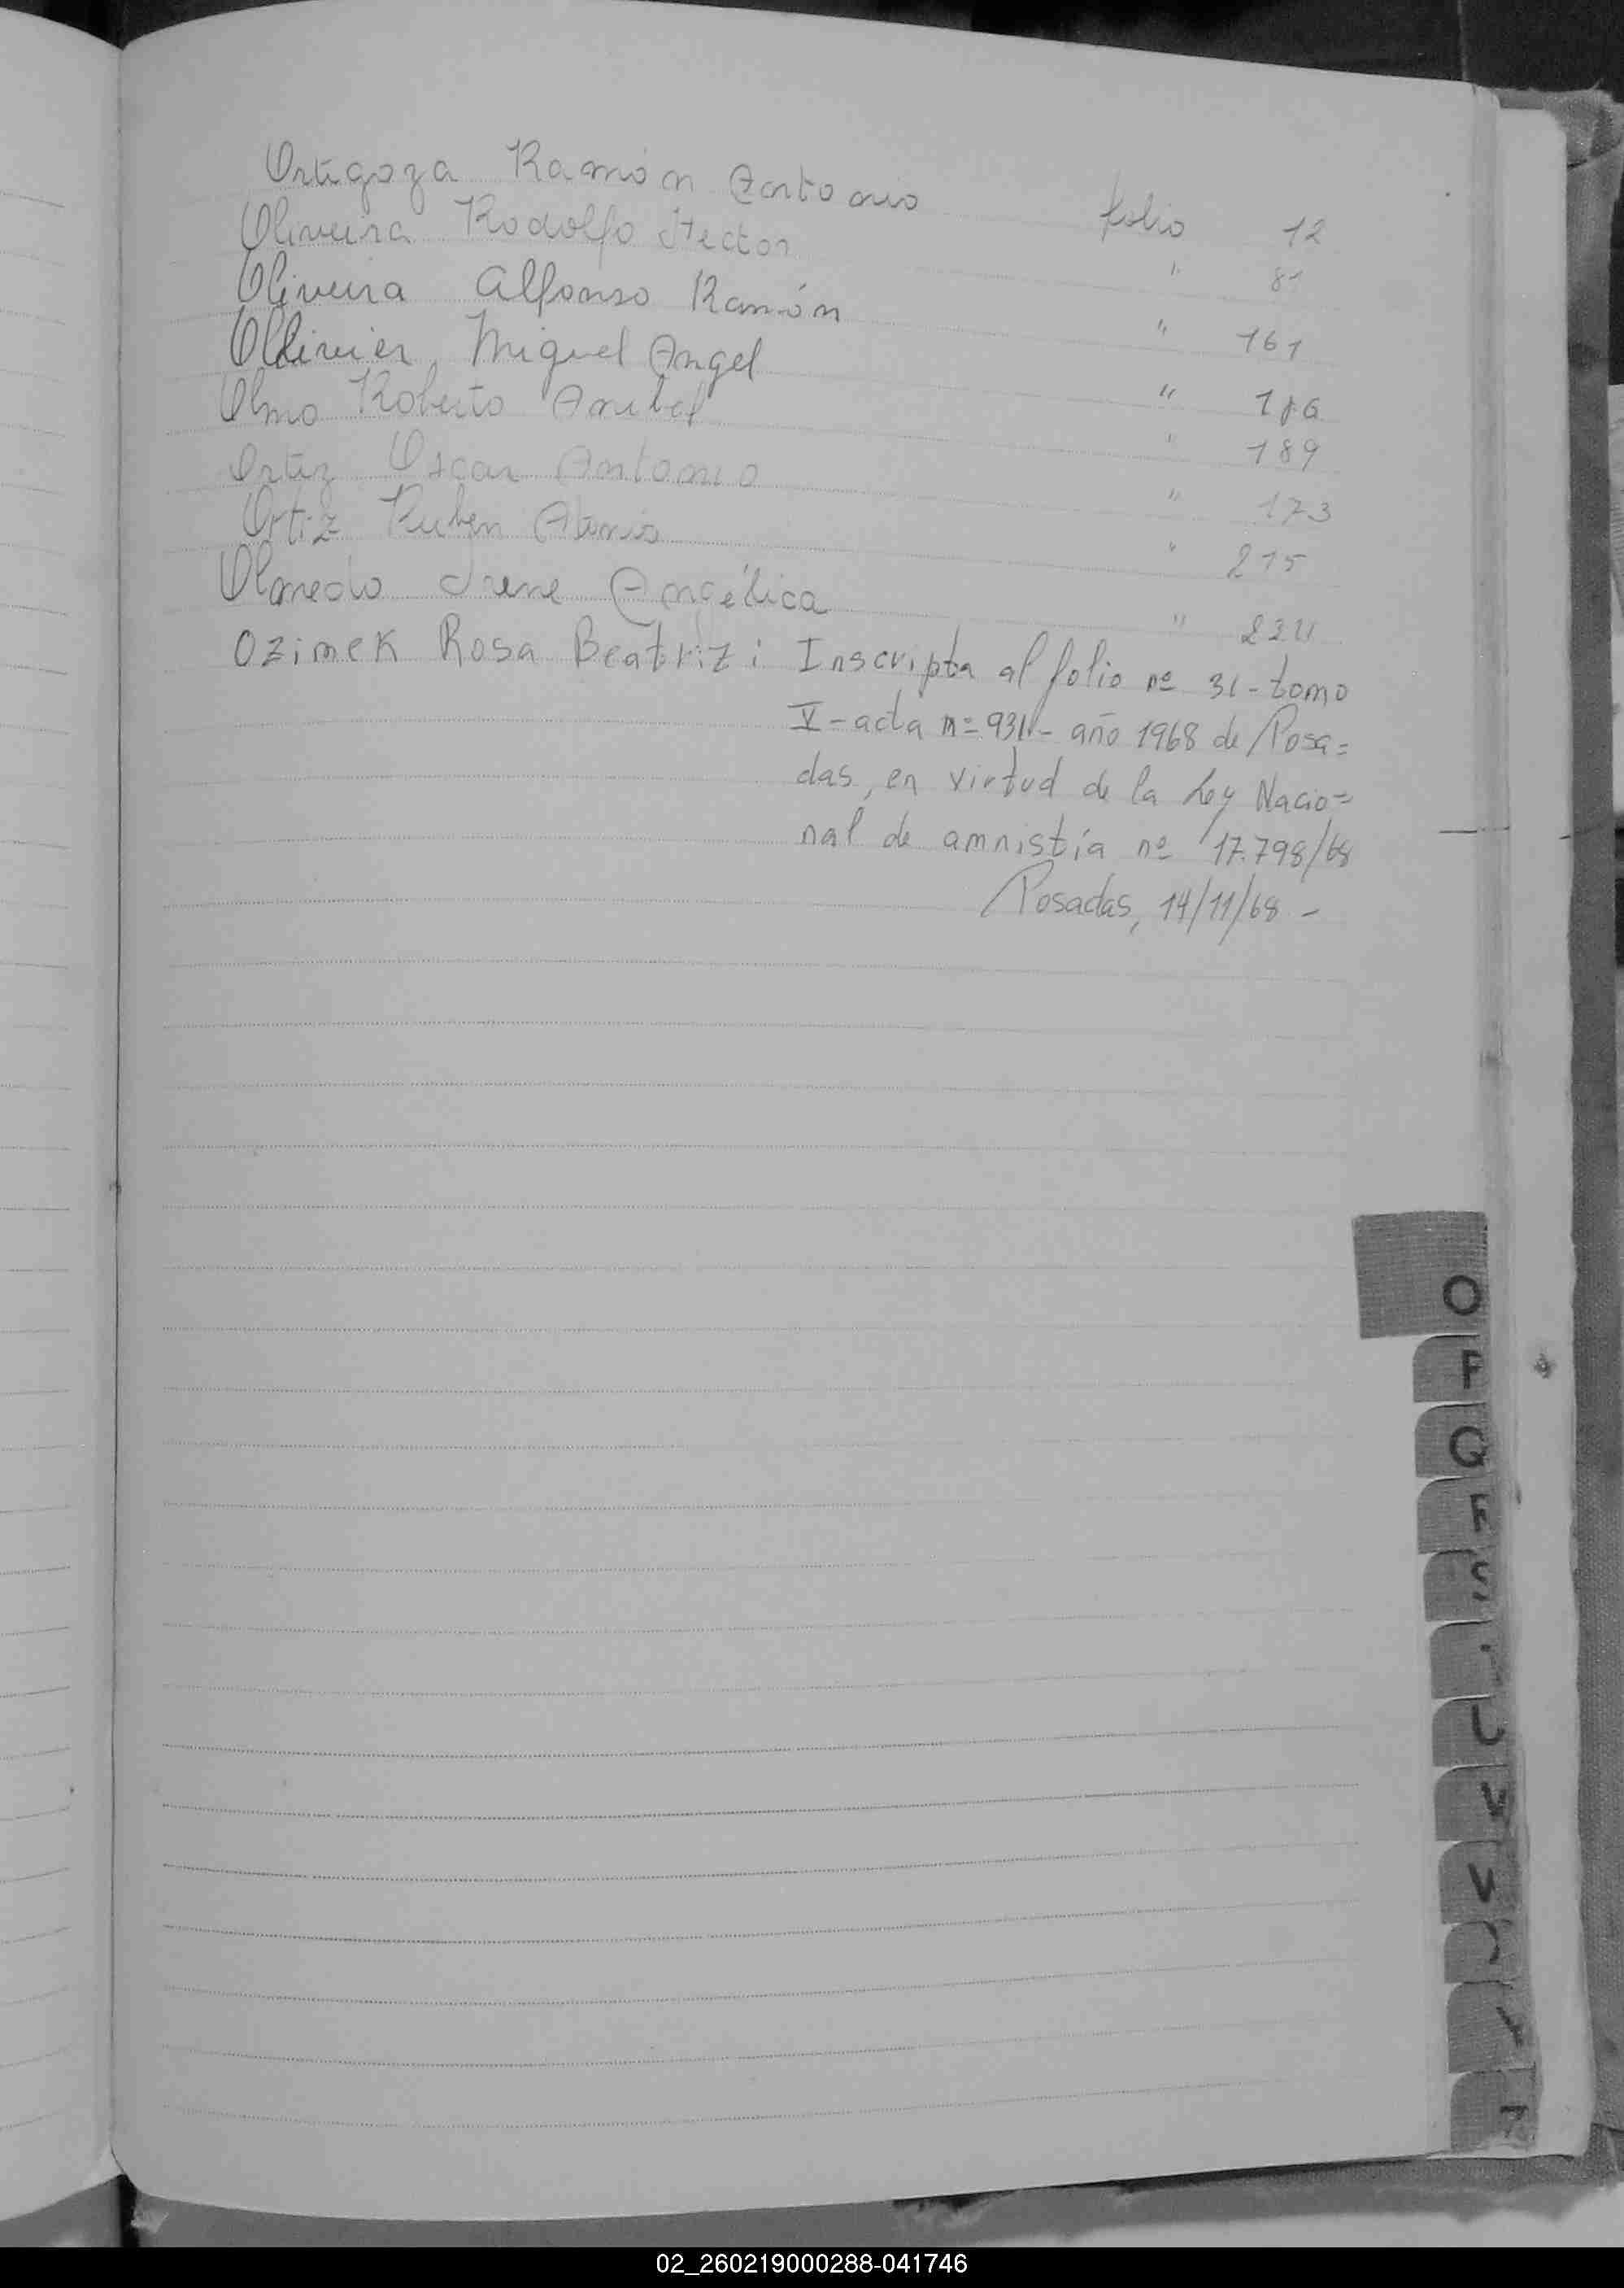 Ortigoza Ramón Antonio folio 12
Oliveira Rodolfo Hector " 81
Oliveira Alfonso Ramón " 161
Ollivier Miguel Angel " 186
Olmo Roberto Anibal " 189
Ortiz Oscar Antonio " 173
Ortiz Ruben " 215
Olmedo Irene Angélica "
Ozimek Rosa Beatriz: Inscripta al folio nº 31-tomo
V-acta n= 931- año 1968 de Posa=
das, en virtud de la Ley Nacio=
nal de amnistía nº 17.798/68
Posadas, 14/11/68 -
O
P
Q
R
S
U
V
Z
02_260219000288-041746